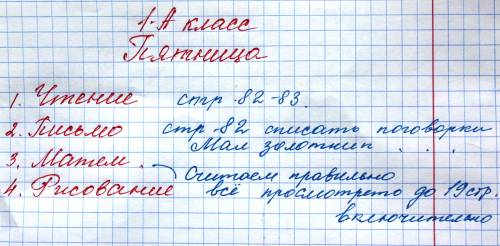 1-А класс
Пятница
1. Чтение стр. 82-83.
2. Письмо стр. 82 списать поговорки
Мал золотник . . .
3. Матем. Считаем правильно
4. Рисование всё просмотрето до 19 стр.
включительно